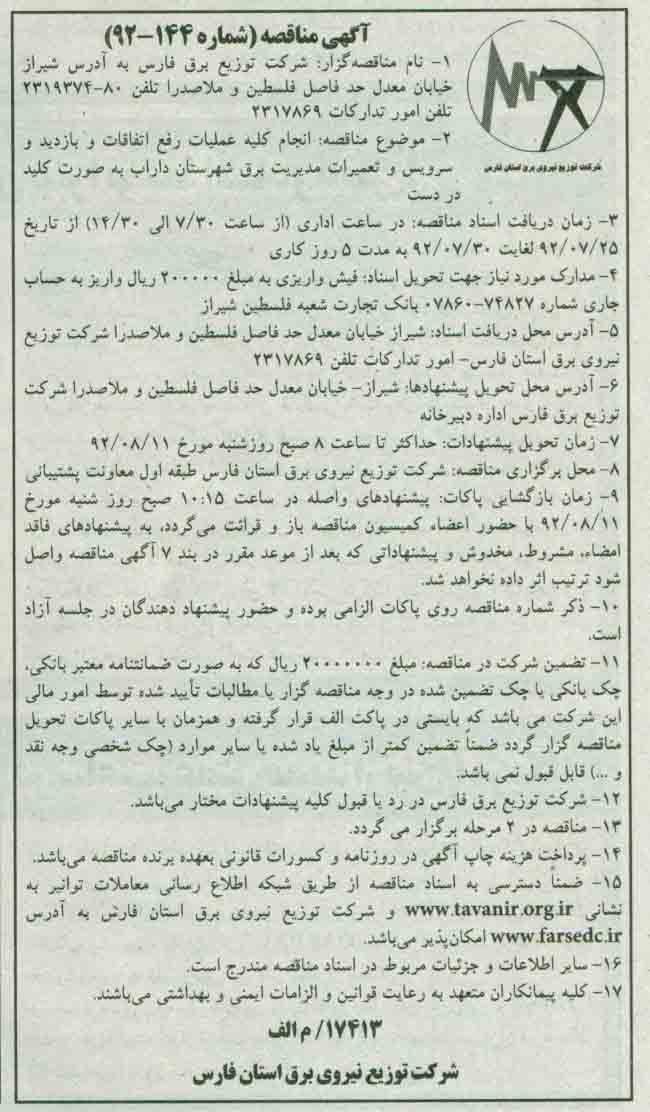 آگهی مناقصه (شماره ۱۴۴-۹۲)
۱- نام مناقصه‌گزار: شرکت توزیع برق فارس به آدرس شیراز
خیابان معدل حد فاصل فلسطین و ملاصدرا تلفن ۸۰-۲۳۱۹۳۷۴
تلفن امور تدارکات ۲۳۱۷۸۶۹
۲- موضوع مناقصه: انجام کلیه عملیات رفع اتفاقات و بازدید و
سرویس و تعمیرات مدیریت برق شهرستان داراب به صورت کلید
در دست
شرکت توزیع نیروی برق استان فارس
۳- زمان دریافت اسناد مناقصه: در ساعت اداری (از ساعت ۷/۳۰ الی ۱۴/۳۰) از تاریخ
۹۲/۰۷/۲۵ لغایت ۹۲/۰۷/۳۰ به مدت ۵ روز کاری
۴- مدارک مورد نیاز جهت تحویل اسناد: فیش واریزی به مبلغ ۲۰۰۰۰۰ ریال واریز به حساب
جاری شماره ۷۴۸۲۷-۰۷۸۶۰ بانک تجارت شعبه فلسطین شیراز
۵- آدرس محل دریافت اسناد: شیراز خیابان معدل حد فاصل فلسطین و ملاصدرا شرکت توزیع
نیروی برق استان فارس- امور تدارکات تلفن ۲۳۱۷۸۶۹
۶- آدرس محل تحویل پیشنهادها: شیراز- خیابان معدل حد فاصل فلسطین و ملاصدرا شرکت
توزیع برق فارس اداره دبیرخانه
۷- زمان تحویل پیشنهادات: حداکثر تا ساعت ۸ صبح روزشنبه مورخ ۹۲/۰۸/۱۱
۸- محل برگزاری مناقصه: شرکت توزیع نیروی برق استان فارس طبقه اول معاونت پشتیبانی
۹- زمان بازگشایی پاکات: پیشنهادهای واصله در ساعت ۱۰:۱۵ صبح روز شنبه مورخ
۹۲/۰۸/۱۱ با حضور اعضاء کمیسیون مناقصه باز و قرائت می‌گردد، به پیشنهادهای فاقد
امضاء، مشروط، مخدوش و پیشنهاداتی که بعد از موعد مقرر در بند ۷ آگهی مناقصه واصل
شود ترتیب اثر داده نخواهد شد.
۱۰- ذکر شماره مناقصه روی پاکات الزامی بوده و حضور پیشنهاد دهندگان در جلسه آزاد
است.
۱۱- تضمین شرکت در مناقصه: مبلغ ۲۰۰۰۰۰۰۰ ریال که به صورت ضمانتنامه معتبر بانکی،
چک بانکی یا چک تضمین شده در وجه مناقصه گزار یا مطالبات تأیید شده توسط امور مالی
این شرکت می باشد که بایستی در پاکت الف قرار گرفته و همزمان با سایر پاکات تحویل
مناقصه گزار گردد ضمناً تضمین کمتر از مبلغ یاد شده یا سایر موارد (چک شخصی وجه نقد
و ...) قابل قبول نمی باشد.
۱۲- شرکت توزیع برق فارس در رد یا قبول کلیه پیشنهادات مختار می‌باشد.
۱۳- مناقصه در ۲ مرحله برگزار می گردد.
۱۴- پرداخت هزینه چاپ آگهی در روزنامه و کسورات قانونی بعهده برنده مناقصه می‌باشد.
۱۵- ضمناً دسترسی به اسناد مناقصه از طریق شبکه اطلاع رسانی معاملات توانیر به
نشانی www.tavanir.org.ir و شرکت توزیع نیروی برق استان فارس به آدرس
www.farsedc.ir امکان‌پذیر می‌باشد.
۱۶- سایر اطلاعات و جزئیات مربوط در اسناد مناقصه مندرج است.
۱۷- کلیه پیمانکاران متعهد به رعایت قوانین و الزامات ایمنی و بهداشتی می‌باشند.
۱۷۴۱۳/ م الف
شرکت توزیع نیروی برق استان فارس